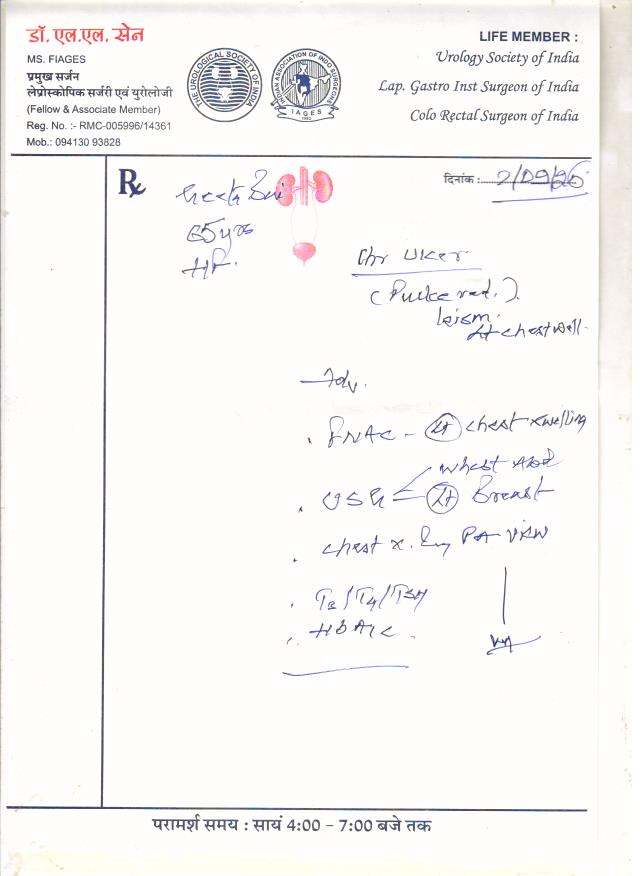 डॉ. एल.एल. सेन
MS. FIAGES
प्रमुख सर्जन
लेप्रोस्कोपिक सर्जरी एवं युरोलोजी
(Fellow & Associate Member)
Reg. No. :- RMC-005996/14361
Mob.: 094130 93828
THE UROLOGICAL SOCIETY OF INDIA
INDIAN ASSOCIATION OF INDO SURGEONS
IAGES
LIFE MEMBER :
Urology Society of India
Lap. Gastro Inst Surgeon of India
Colo Rectal Surgeon of India
Rx
दिनांक :
65 yrs
Chr Ulcer
Lt chest wall
Adv.
. FNAC - Lt chest swelling
. USG Lt Breast
. chest x. Ray PA view
. T3/T4/TSH
. HbA1c
परामर्श समय : सायं 4:00 - 7:00 बजे तक